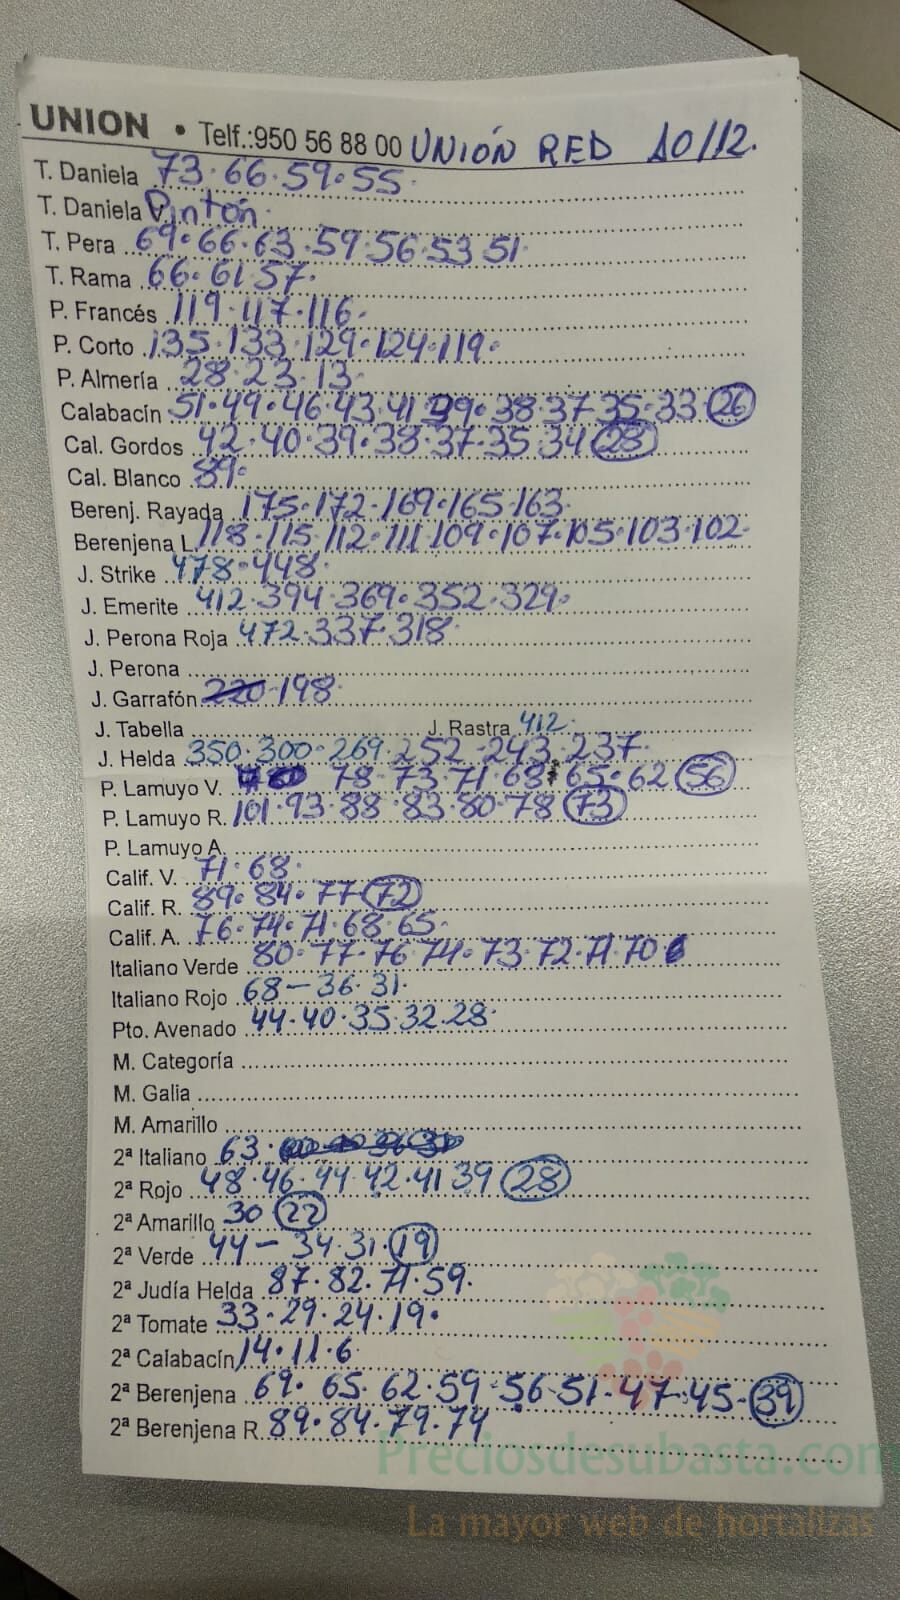 UNION • Telf.:950 56 88 00 UNIÓN RED 10/12.
T. Daniela 73·66·59·55·
T. Daniela V. Pintón·
T. Pera 69·66·63·59·56·53 51·
T. Rama 66·61·57·
P. Francés 119·117·116·
P. Corto 135·133·129·124·119·
P. Almería 28·23·13·
Calabacín 51·49·46·43·41·39·38·37·35·33·26
Cal. Gordos 42·40·39·38·37·35·34 28
Cal. Blanco 89·
Berenj. Rayada 175·172·169·165·163·
Berenjena L 118·115·112·111·109·107·105·103·102·
J. Strike 478·448·
J. Emerite 412·394·369·352·329·
J. Perona Roja 472·337·318·
J. Perona
J. Garrafón 220·198·
J. Tabella J. Rastra 412·
J. Helda 350·300·269·252·243·237·
P. Lamuyo V. 78·73·71·68·65·62 56
P. Lamuyo R. 101·93·88·83·80·78 73
P. Lamuyo A.
Calif. V. 71·68·
Calif. R. 89·84·77·72
Calif. A. 76·74·71·68·65·
Italiano Verde 80·77·76·74·73·72·71·70
Italiano Rojo 68—36·31·
Pto. Avenado 44·40·35·32·28·
M. Categoría
M. Galia
M. Amarillo
2ª Italiano 63·
2ª Rojo 48·46·44·42·41 39 28
2ª Amarillo 30 22
2ª Verde 44— 34·31·19
2ª Judía Helda 87·82·71·59·
2ª Tomate 33·29·24·19·
2ª Calabacín 14·11·6
2ª Berenjena 69·65·62·59·56·51·47·45·39
2ª Berenjena R. 89·84·79·74
Preciosdesubasta.com
La mayor web de hortalizas